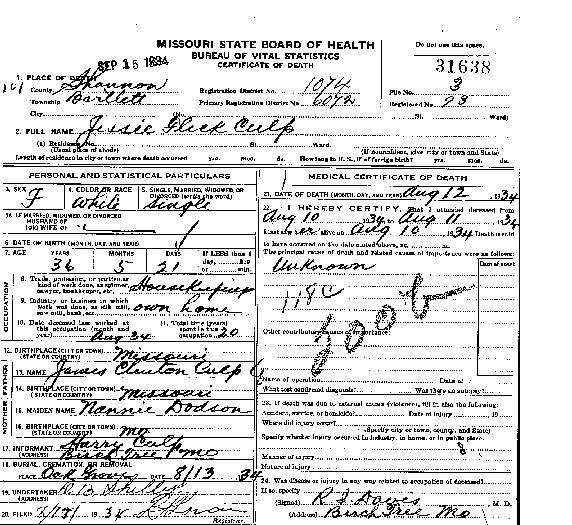 MISSOURI STATE BOARD OF HEALTH
BUREAU OF VITAL STATISTICS
CERTIFICATE OF DEATH
Do not use this space.
SEP 15 1934
31638
1. PLACE OF DEATH
County Shannon Registration District No. 1074 File No. 3
Township Bartlett Primary Registration District No. 6072 Registered No. 23
City St. Ward)
2. FULL NAME Jessie Flick Culp
(a) Residence, No. St. Ward.
(Usual place of abode) (If nonresident, give city or town and State)
Length of residence in city or town where death occurred yrs. mos. ds. How long in U. S., if of foreign birth? yrs. mos. ds.
PERSONAL AND STATISTICAL PARTICULARS
3. SEX F
4. COLOR OR RACE White
5. SINGLE, MARRIED, WIDOWED, OR DIVORCED (write the word) Single
5A. IF MARRIED, WIDOWED, OR DIVORCED
HUSBAND OF
(OR) WIFE OF
6. DATE OF BIRTH (MONTH, DAY, AND YEAR)
7. AGE YEARS MONTHS DAYS If LESS than 1 day, hrs. or min.
36 5 21
OCCUPATION
8. Trade, profession, or particular kind of work done, as spinner, sawyer, bookkeeper, etc. Housekeeping
9. Industry or business in which work was done, as silk mill, saw mill, bank, etc. own home
10. Date deceased last worked at this occupation (month and year) Aug 34
11. Total time (years) spent in this occupation 20
12. BIRTHPLACE (CITY OR TOWN) Missouri
(STATE OR COUNTRY)
FATHER
13. NAME James Clinton Culp
14. BIRTHPLACE (CITY OR TOWN) Missouri
(STATE OR COUNTRY)
MOTHER
15. MAIDEN NAME Nannie Dodson
16. BIRTHPLACE (CITY OR TOWN) Mo
(STATE OR COUNTRY)
17. INFORMANT Harry Culp
(ADDRESS) Birch Tree Mo
18. BURIAL, CREMATION, OR REMOVAL
PLACE Oak Grove DATE 8/13 34
19. UNDERTAKER
(ADDRESS)
20. FILED 1934
Registrar.
MEDICAL CERTIFICATE OF DEATH
21. DATE OF DEATH (MONTH, DAY, AND YEAR) Aug 12 1934
22. I HEREBY CERTIFY, That I attended deceased from
Aug 10 1934, to Aug 11 1934
I last saw her alive on Aug 10 1934 Death is said
to have occurred on the date stated above, at m.
The principal cause of death and related causes of importance were as follows:
Date of onset
Unknown
118C
200b
Other contributory causes of importance:
Name of operation Date of
What test confirmed diagnosis? Was there an autopsy?
23. If death was due to external causes (violence), fill in also the following:
Accident, suicide, or homicide? Date of injury 19
Where did injury occur?
(Specify city or town, county, and State)
Specify whether injury occurred in industry, in home, or in public place.
Manner of injury
Nature of injury
24. Was disease or injury in any way related to occupation of deceased?
If so, specify
(Signed) R J Davis M. D.
(Address) Birch Tree Mo